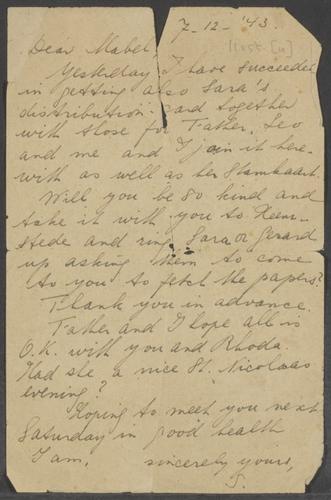 7-12-'43.
Dear Mabel,
Yesterday I have succeeded
in getting also Sara's
distribution-card together
with those for Father, Leo
and me and I join it here-
with as well as her Stamkaart.
Will you be so kind and
take it with you to Heem-
stede and ring Sara or Gerard
up asking them to come
to you to fetch the papers?
Thank you in advance.
Father and I hope all is
O.K. with you and Rhoda.
Had she a nice St. Nicolaas
evening?
Hoping to meet you next
Saturday in good health
I am, sincerely yours,
S.